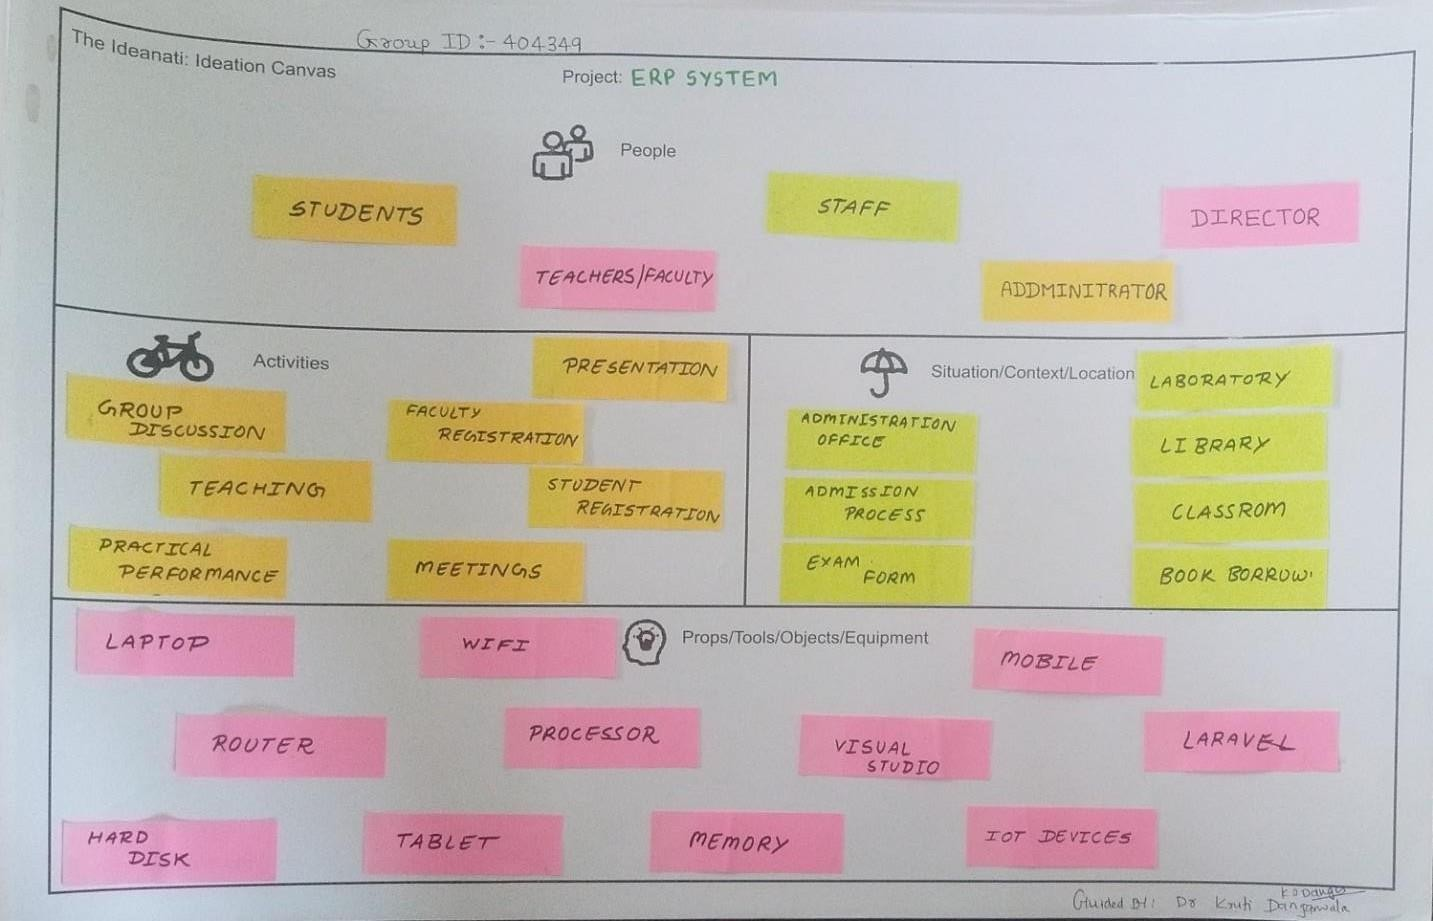 Group ID :- 404349
The Ideanati: Ideation Canvas
Project: ERP SYSTEM
People
STUDENTS
STAFF
DIRECTOR
TEACHERS/FACULTY
ADDMINITRATOR
Activities
PRESENTATION
GROUP
DISCUSSION
FACULTY
REGISTRATION
TEACHING
STUDENT
REGISTRATION
PRACTICAL
PERFORMANCE
MEETINGS
Situation/Context/Location
LABORATORY
ADMINISTRATION
OFFICE
LIBRARY
ADMISSION
PROCESS
CLASSROM
EXAM
FORM
BOOK BORROW
Props/Tools/Objects/Equipment
LAPTOP
WIFI
MOBILE
ROUTER
PROCESSOR
VISUAL
STUDIO
LARAVEL
HARD
DISK
TABLET
MEMORY
IOT DEVICES
Guided By: Dr Kruti Dangarwala